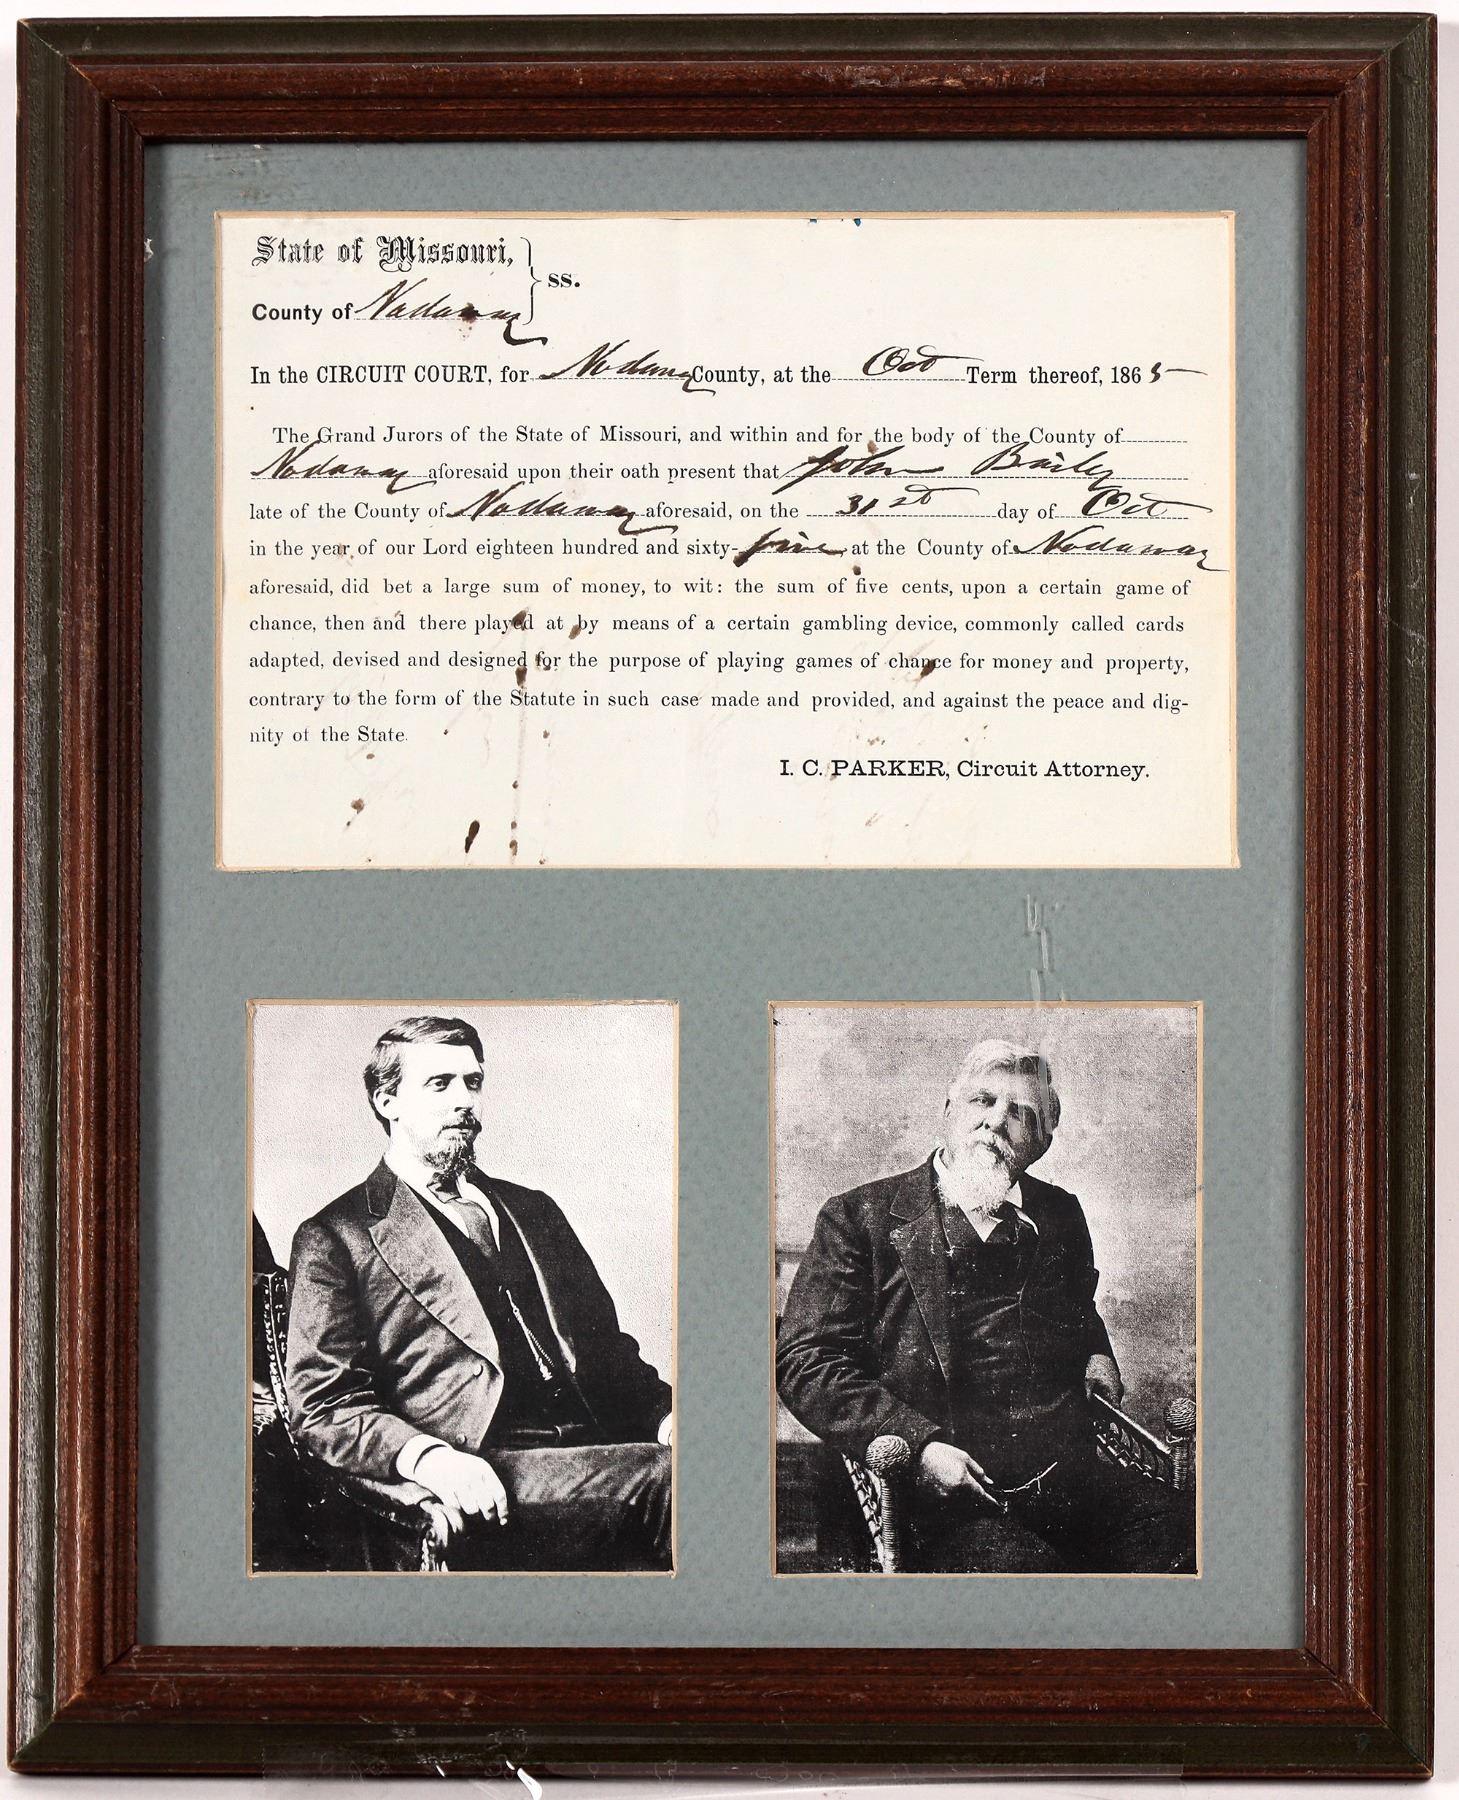 State of Missouri,
ss.
County of Nodaway
In the CIRCUIT COURT, for Nodaway County, at the Oct Term thereof, 1865
The Grand Jurors of the State of Missouri, and within and for the body of the County of
Nodaway aforesaid upon their oath present that John Baily
late of the County of Nodaway aforesaid, on the 31st day of Oct
in the year of our Lord eighteen hundred and sixty-five, at the County of Nodaway
aforesaid, did bet a large sum of money, to wit: the sum of five cents, upon a certain game of
chance, then and there played at by means of a certain gambling device, commonly called cards
adapted, devised and designed for the purpose of playing games of chance for money and property,
contrary to the form of the Statute in such case made and provided, and against the peace and dig-
nity of the State.
I. C. PARKER, Circuit Attorney.